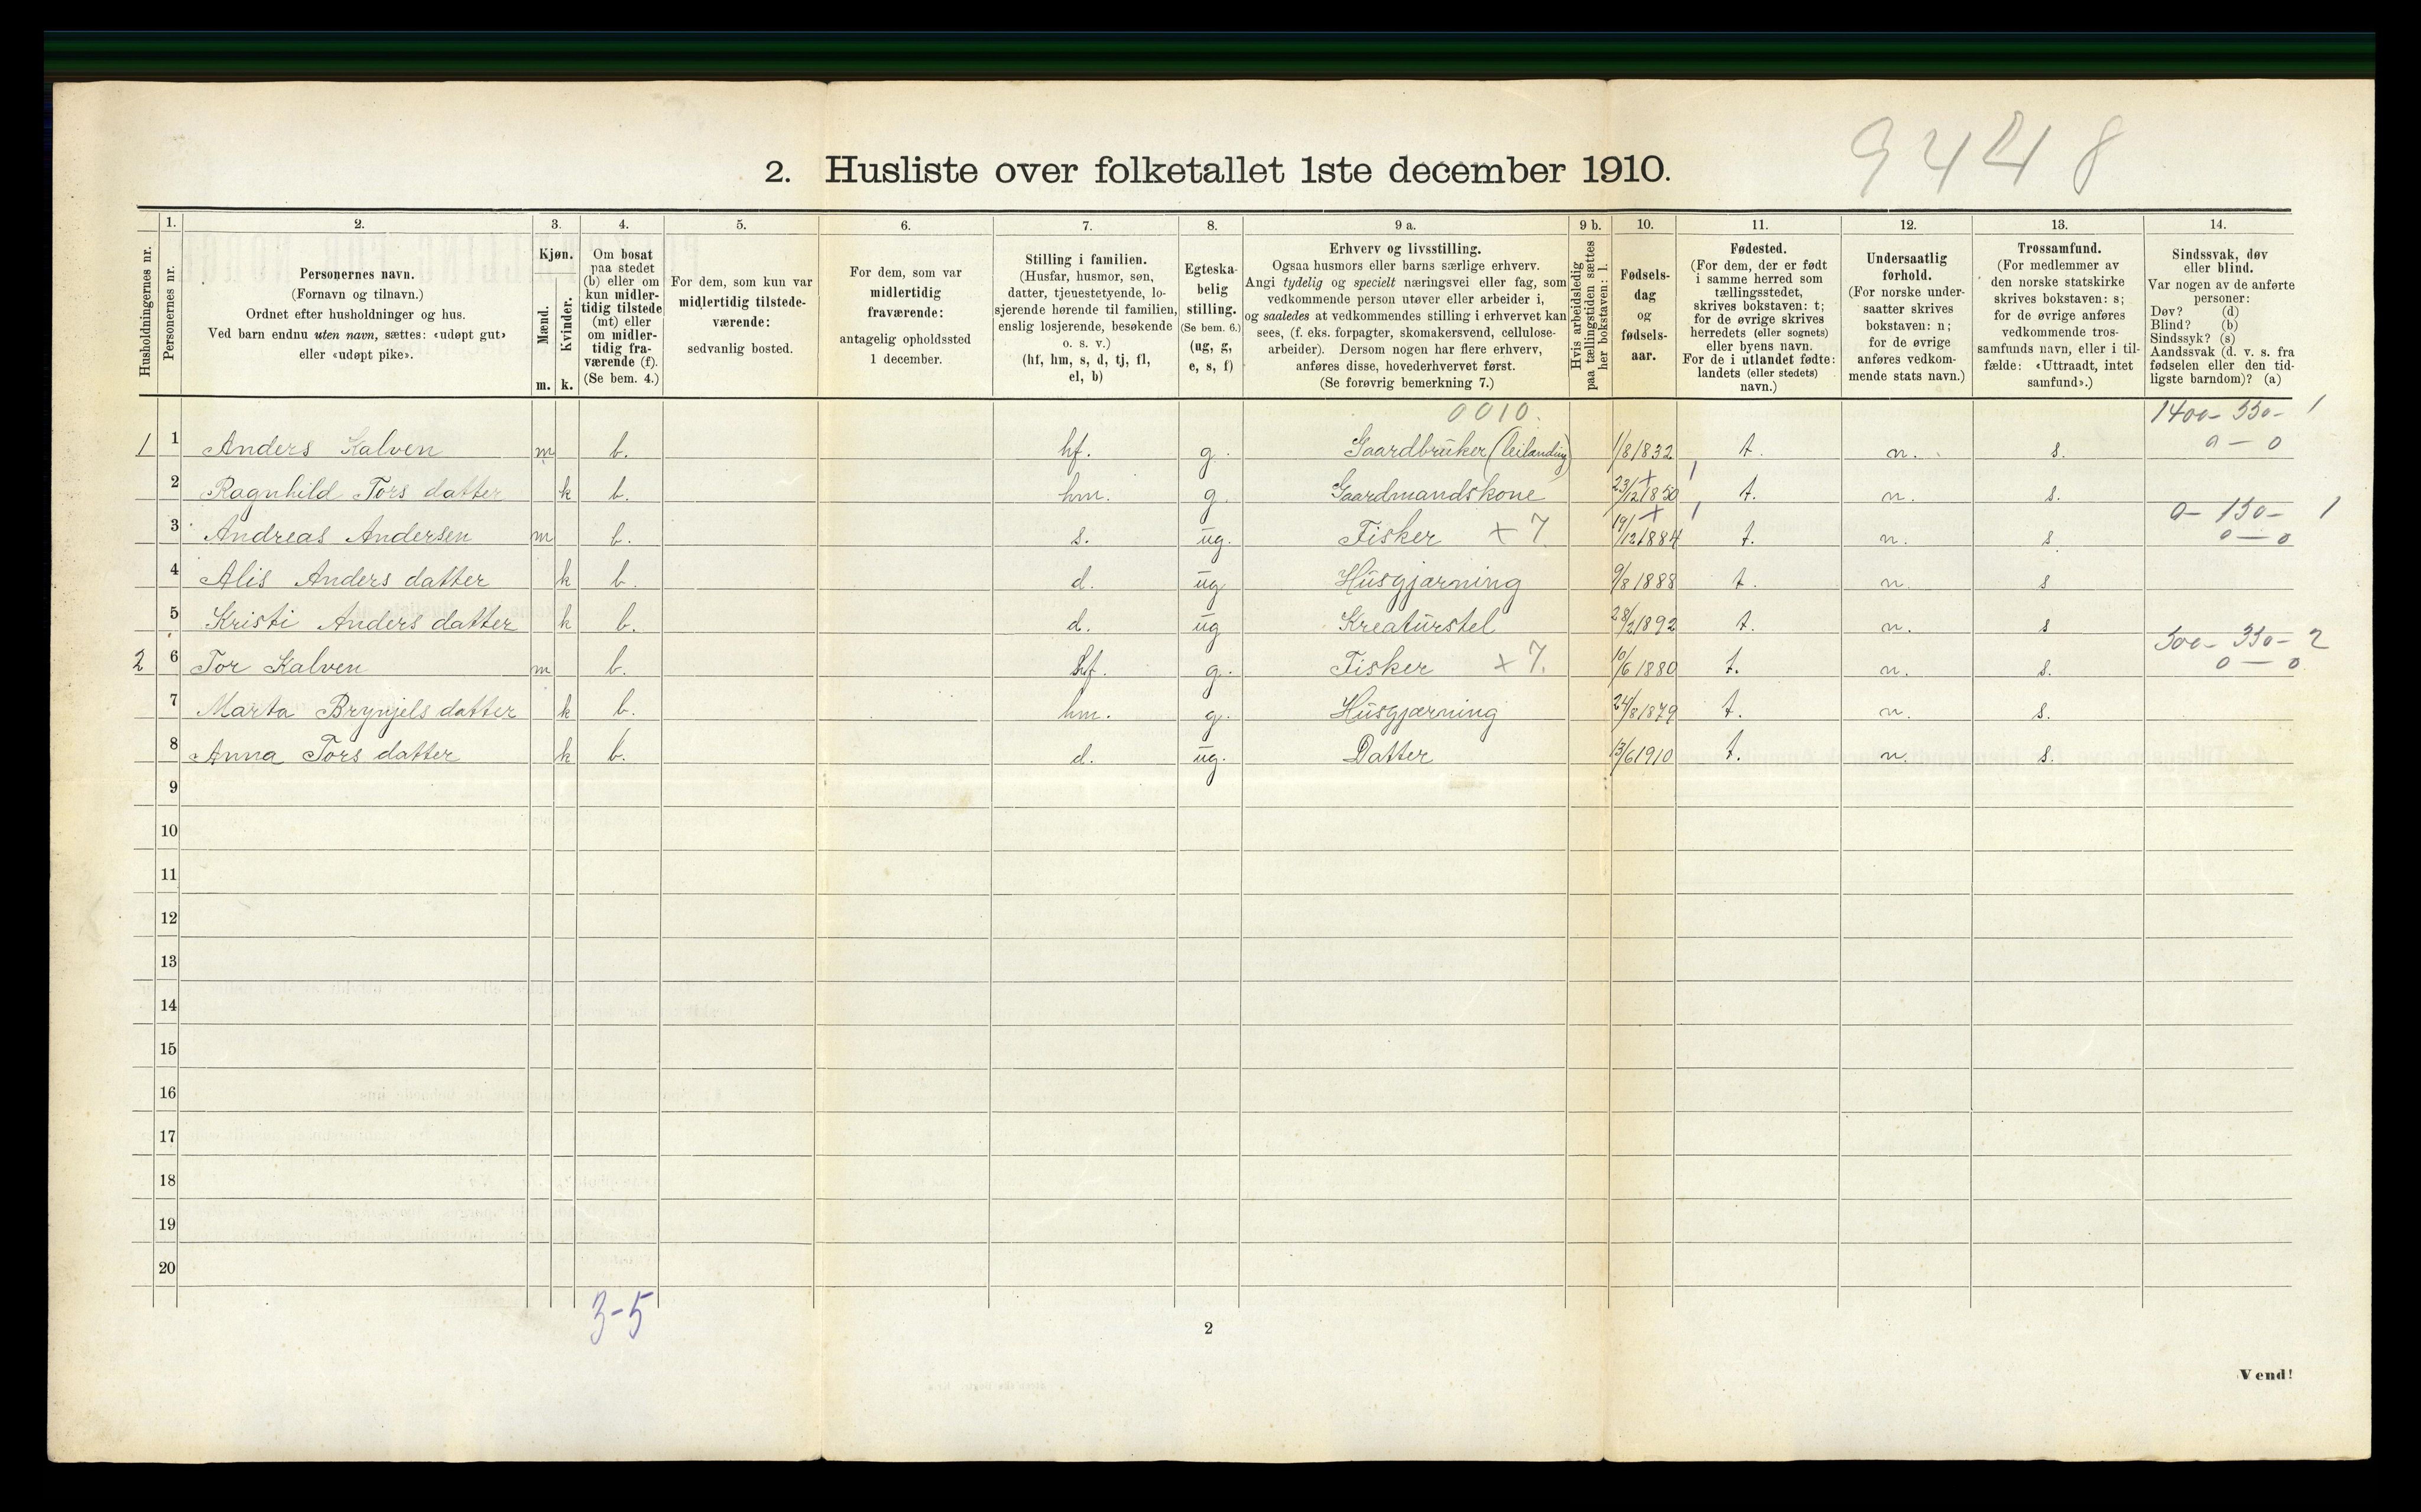 9448
2. Husliste over folketallet 1ste december 1910.
Husholdningernes nr.
1.
Personernes nr.
2.
Personernes navn.
(Fornavn og tilnavn.)
Ordnet efter husholdninger og hus.
Ved barn endnu uten navn, sættes: «udøpt gut»
eller «udøpt pike».
3.
Kjøn.
Mænd.
m.
Kvinder.
k.
4.
Om bosat
paa stedet
(b) eller om
kun midler-
tidig tilstede
(mt) eller
om midler-
tidig fra-
værende (f).
(Se bem. 4.)
5.
For dem, som kun var
midlertidig tilstede-
værende:
sedvanlig bosted.
6.
For dem, som var
midlertidig
fraværende:
antagelig opholdssted
1 december.
7.
Stilling i familien.
(Husfar, husmor, søn,
datter, tjenestetyende, lo-
sjerende hørende til familien,
enslig losjerende, besøkende
o. s. v.)
(hf, hm, s, d, tj, fl,
el, b)
8.
Egteska-
belig
stilling.
(Se bem. 6.)
(ug, g,
e, s, f)
9 a.
Erhverv og livsstilling.
Ogsaa husmors eller barns særlige erhverv.
Angi tydelig og specielt næringsvei eller fag, som
vedkommende person utøver eller arbeider i,
og saaledes at vedkommendes stilling i erhvervet kan
sees, (f. eks. forpagter, skomakersvend, cellulose-
arbeider). Dersom nogen har flere erhverv,
anføres disse, hovederhvervet først.
(Se forøvrig bemerkning 7.)
9 b.
Hvis arbeidsledig
paa tællingstiden sættes
her bokstaven: l.
10.
Fødsels-
dag
og
fødsels-
aar.
11.
Fødested.
(For dem, der er født
i samme herred som
tællingsstedet,
skrives bokstaven: t;
for de øvrige skrives
herredets (eller sognets)
eller byens navn.
For de i utlandet fødte:
landets (eller stedets)
navn.)
12.
Undersaatlig
forhold.
(For norske under-
saatter skrives
bokstaven: n;
for de øvrige
anføres vedkom-
mende stats navn.)
13.
Trossamfund.
(For medlemmer av
den norske statskirke
skrives bokstaven: s;
for de øvrige anføres
vedkommende tros-
samfunds navn, eller i til-
fælde: «Uttraadt, intet
samfund».)
14.
Sindssvak, døv
eller blind.
Var nogen av de anførte
personer:
Døv? (d)
Blind? (b)
Sindssyk? (s)
Aandssvak (d. v. s. fra
fødselen eller den tid-
ligste barndom)? (a)
0010. 1400- 350- 1
1 1 Anders Kalven m b. hf. g. Gaardbruker (leilending) 1/8 1832 t. n. s. 0 - 0
2 Ragnhild Tors datter k b. hm. g. Gaardmandskone 23/12 1850 t. n. s.
0- 150- 1
3 Andreas Andersen m b. s. ug. Fisker x 7 19/12 1884 t. n. s 0 - 0
4 Alis Anders datter k b. d. ug Husgjærning 9/8 1888 t. n. s
5 Kristi Anders datter k b. d. ug Kreaturstel 28/2 1892 t. n. s
500- 350- 2
2 6 Tor Kalven m b. hf. g. Fisker x 7. 10/6 1880 t. n. s. 0 - 0
7 Marta Brynjels datter k b. hm. g. Husgjærning 24/8 1879 t. n. s.
8 Anna Tors datter k b. d. ug. Datter 13/6 1910 t. n. s.
9
10
11
12
13
14
15
16
17
18
19
20
3-5
2
Vend!